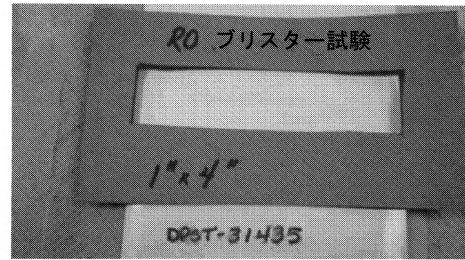 RO ブリスター試験
1"x 4"
DPST-31435